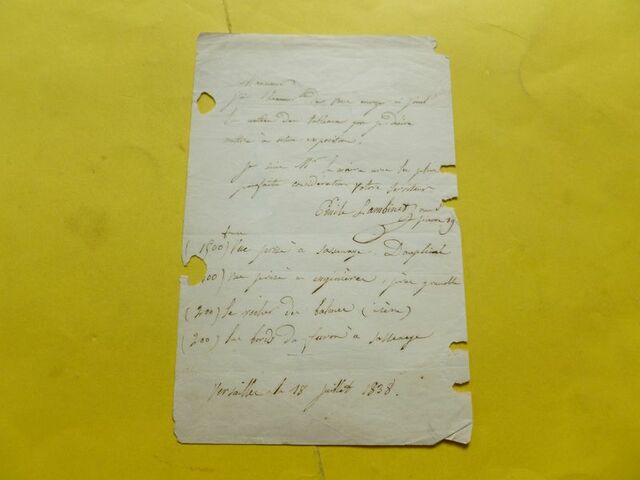 Monsieur
J'ai l'honneur de vous envoyer ci joint
la notice des tableaux que je désire
mettre à votre exposition.
Je suis Mr le maire avec la plus
parfaite considération votre serviteur
Emile Lambinet
(1500 francs) Vue prise à Sassenage. Dauphiné
00) Vue prise à , près grenoble
(200) Le rocher de balme (isère)
(200) Les bords du furon à Sassenage
Versailles le 18 juillet 1838.